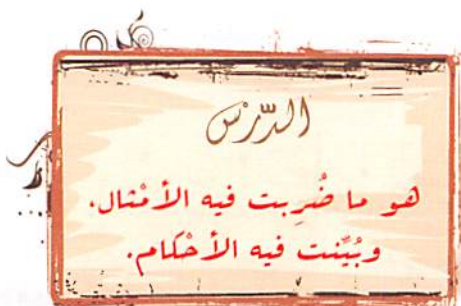 الدّرس
هو ما ضُرِبت فيه الأمْثال.
وبُيِّنت فيه الأحْكام.